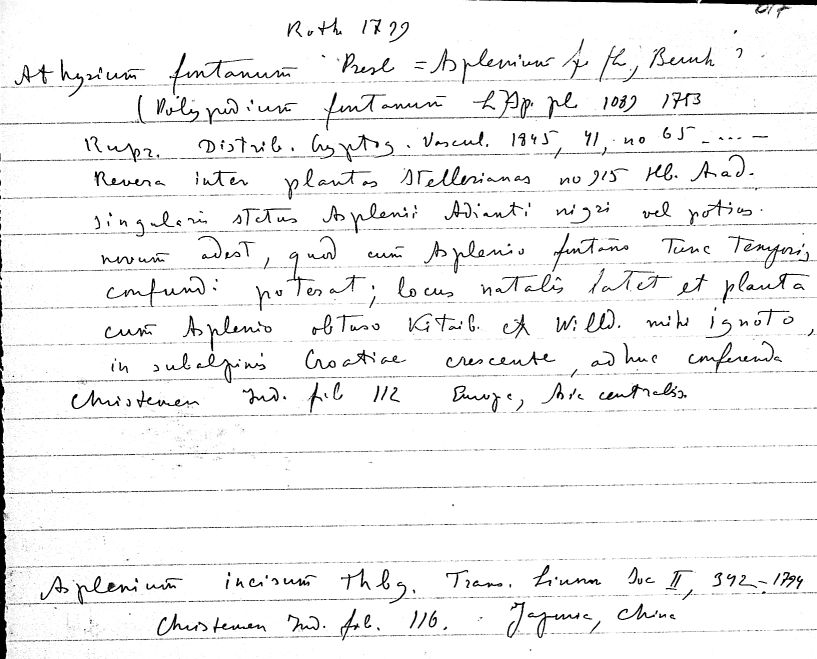 Roth 1799
Athyrium fontanum Presl = Asplenium Bernh ?
(Polypodium fontanum L Sp. pl 1089 1753
Rupr. Distrib. Cryptog. Vascul. 1845, 41, no 65 - ... . —
Revera inter plantas Stellerianas no 915 Hb. Acad.
singularis status Asplenii Adianti nigri vel potius
novum adest, quod cum Asplenio fontano tunc temporis
confundi poterat; locus natalis latet et planta
cum Asplenio obtuso Kitaib. et Willd. mihi ignoto,
in subalpinis Croatiae crescente, adhuc conferenda
Christensen Ind. fil 112 Europe, Asia centralis.
Asplenium incisum Thbg. Trans. Linn Soc II, 342 - 1794
Christensen Ind. fil. 116. Japonia, China